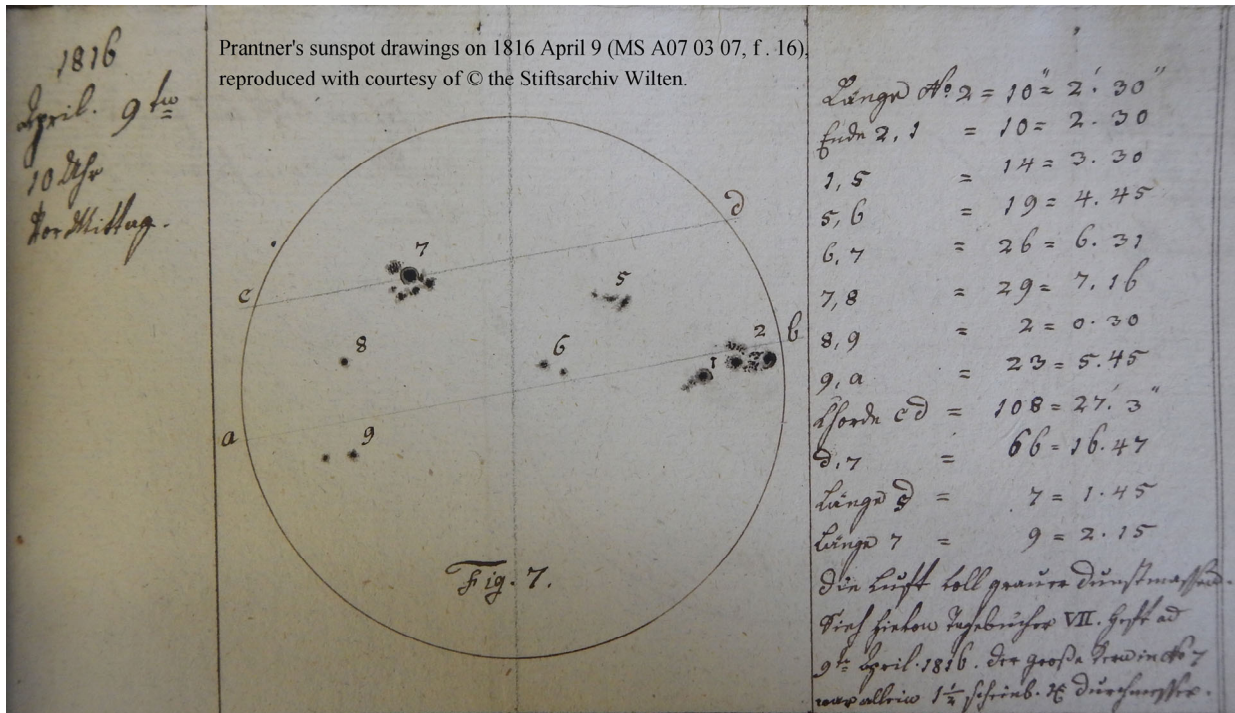 Prantner's sunspot drawings on 1816 April 9 (MS A07 03 07, f . 16),
reproduced with courtesy of © the Stiftsarchiv Wilten.
1816
April. 9 ten
10 Uhr
Vor Mittag.
d
c
7
5
2
b
8
6
1
a
9
Fig. 7.
Länge No. 2 = 10" = 2.' 30"
Ende 2, 1 = 10 = 2. 30
1, 5 = 14 = 3. 30
5, 6 = 19 = 4. 45
6, 7 = 26 = 6. 31
7, 8 = 29 = 7. 16
8, 9 = 2 = 0. 30
9, a = 23 = 5. 45
Chorde c d = 108 = 27.' 3"
d, 7 = 66 = 16. 47
Länge 5 = 7 = 1. 45
Länge 7 = 9 = 2. 15
Die Luft voll grauer Dunstmassen.
Sieh hievon Tagebücher VII. Heft ad
9te April. 1816. Der große Kern in No 7
war allein 1 1/2 scheinb. Durchmesser.